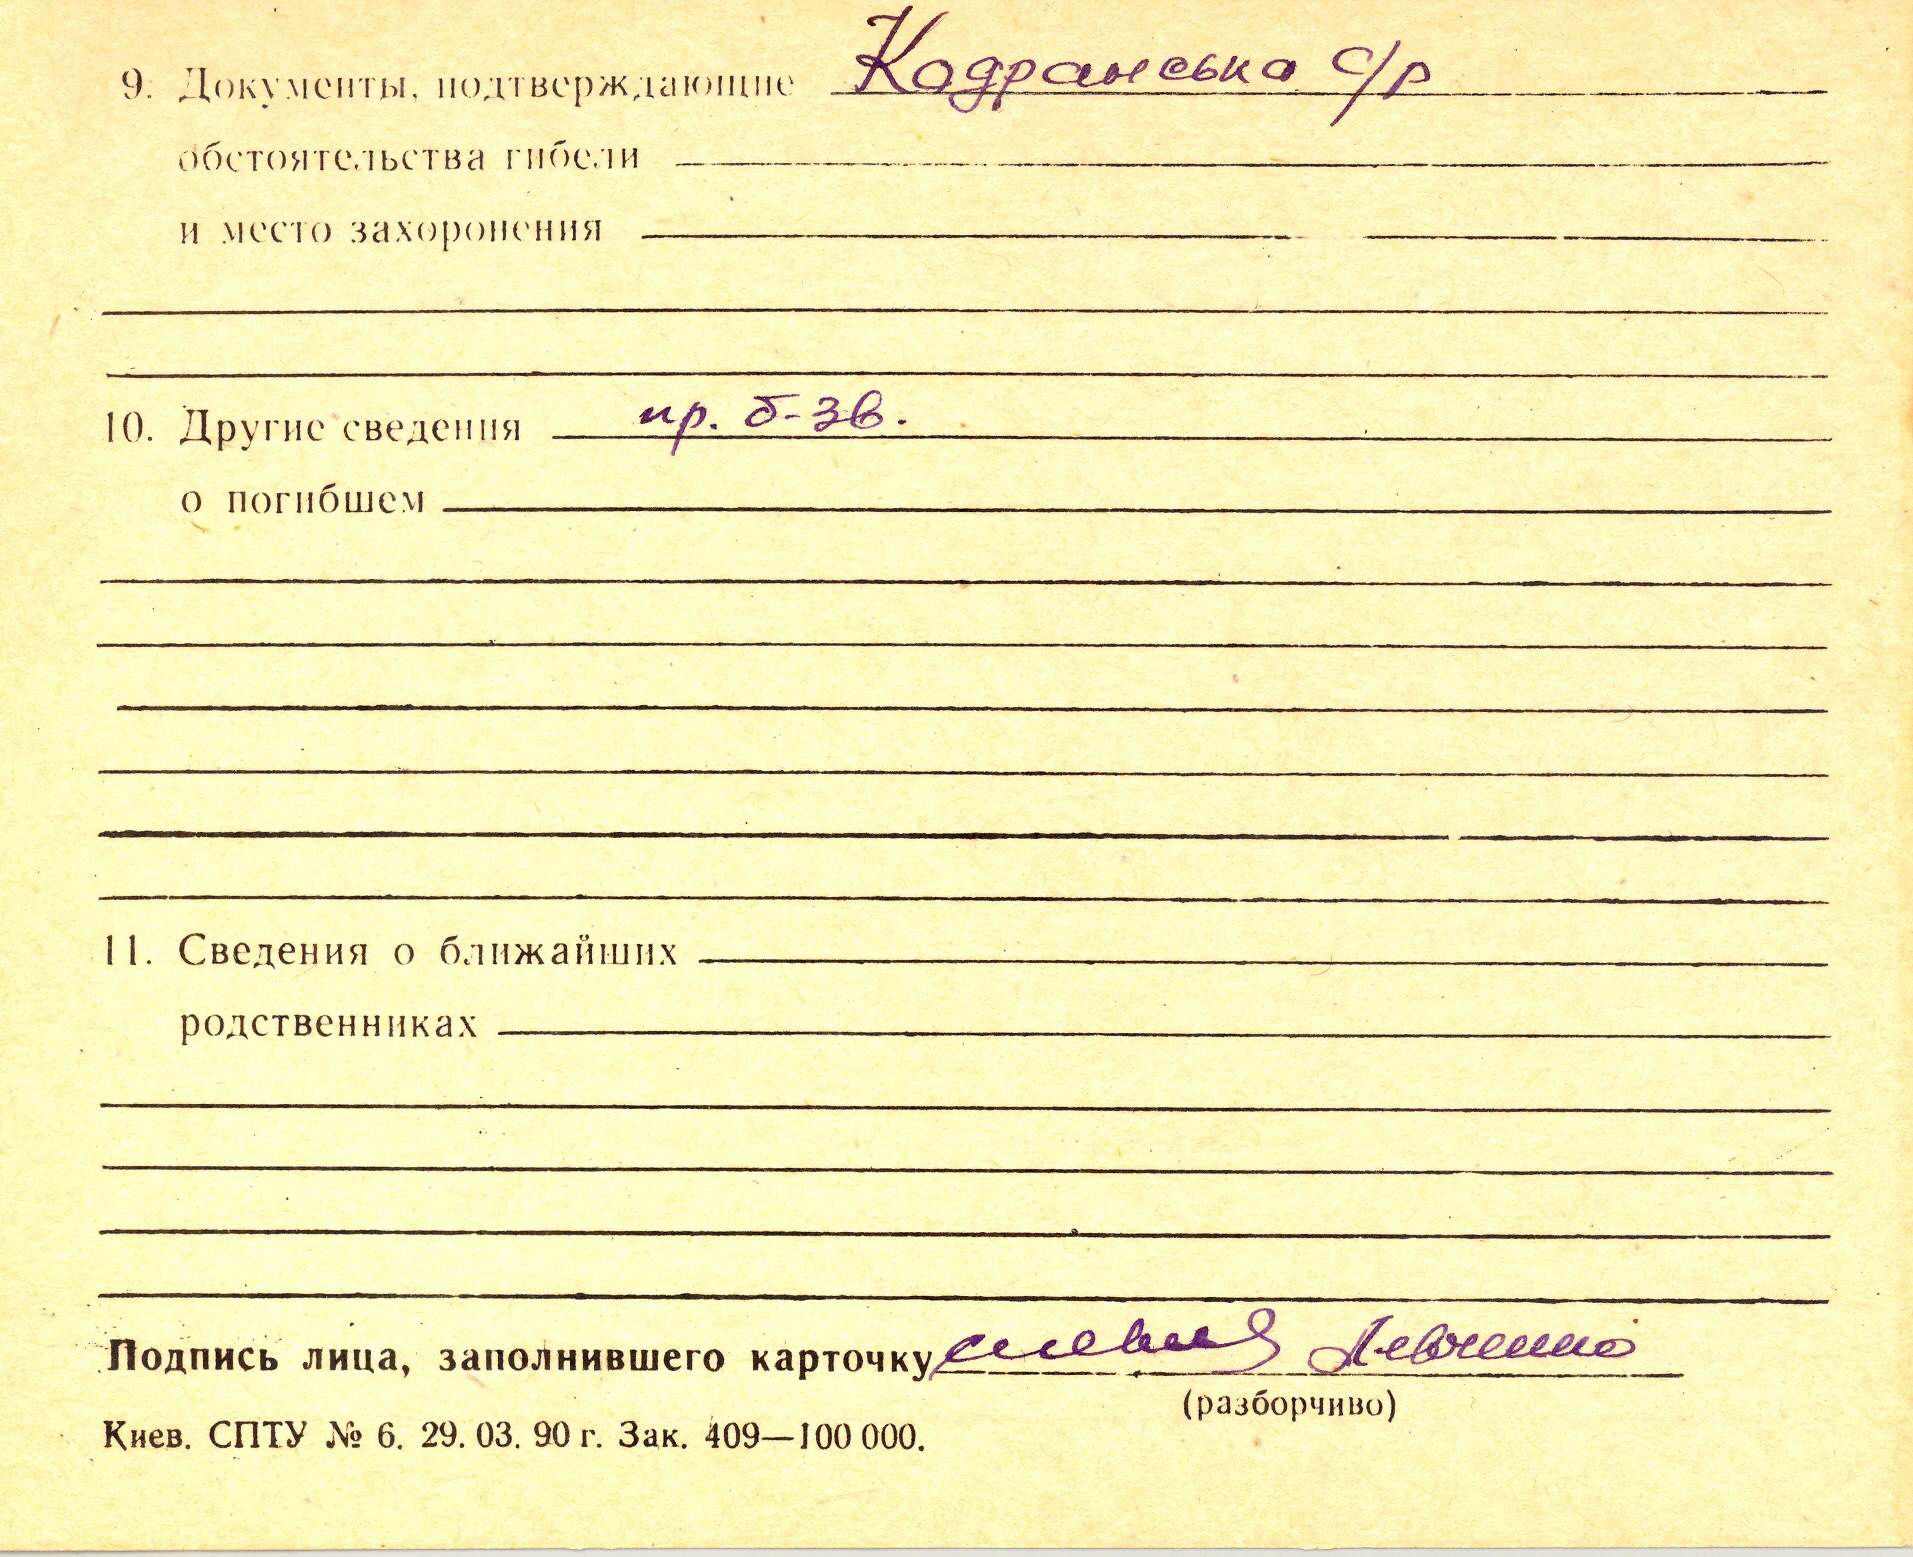 9. Документы, подтверждающие Кодранська с/р
обстоятельства гибели
и место захоронения
10. Другие сведения пр. б-зв.
о погибшем
11. Сведения о ближайших
родственниках
Подпись лица, заполнившего карточку Левченко
(разборчиво)
Киев. СПТУ № 6. 29. 03. 90 г. Зак. 409—100 000.